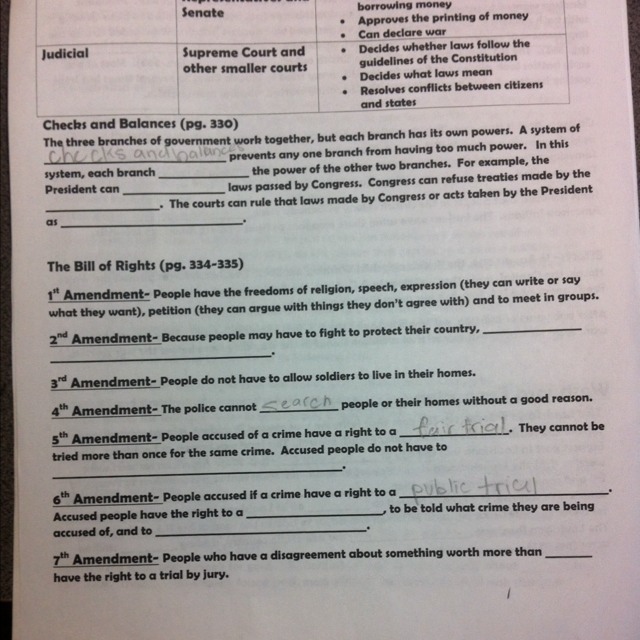 Senate
borrowing money
• Approves the printing of money
• Can declare war
Judicial
Supreme Court and
other smaller courts
• Decides whether laws follow the
guidelines of the Constitution
• Decides what laws mean
• Resolves conflicts between citizens
and states
Checks and Balances (pg. 330)
The three branches of government work together, but each branch has its own powers. A system of
checks and balances prevents any one branch from having too much power. In this
system, each branch ____________ the power of the other two branches. For example, the
President can ____________ laws passed by Congress. Congress can refuse treaties made by the
____________. The courts can rule that laws made by Congress or acts taken by the President
as ____________.
The Bill of Rights (pg. 334-335)
1st Amendment- People have the freedoms of religion, speech, expression (they can write or say
what they want), petition (they can argue with things they don't agree with) and to meet in groups.
2nd Amendment- Because people may have to fight to protect their country, ____________
____________.
3rd Amendment- People do not have to allow soldiers to live in their homes.
4th Amendment- The police cannot search people or their homes without a good reason.
5th Amendment- People accused of a crime have a right to a fair trial. They cannot be
tried more than once for the same crime. Accused people do not have to
____________.
6th Amendment- People accused if a crime have a right to a public trial.
Accused people have the right to a ____________, to be told what crime they are being
accused of, and to ____________.
7th Amendment- People who have a disagreement about something worth more than ______
have the right to a trial by jury.
1